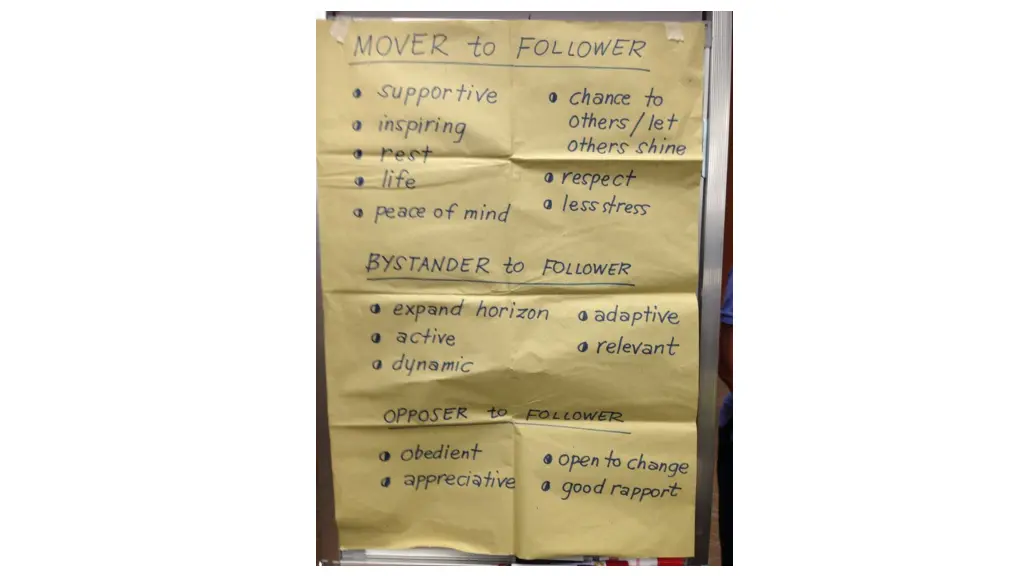 MOVER to FOLLOWER
supportive
inspiring
rest
life
peace of mind
chance to
others/let
others shine
respect
less stress
BYSTANDER to FOLLOWER
expand horizon
active
dynamic
adaptive
relevant
OPPOSER to FOLLOWER
obedient
appreciative
open to change
good rapport